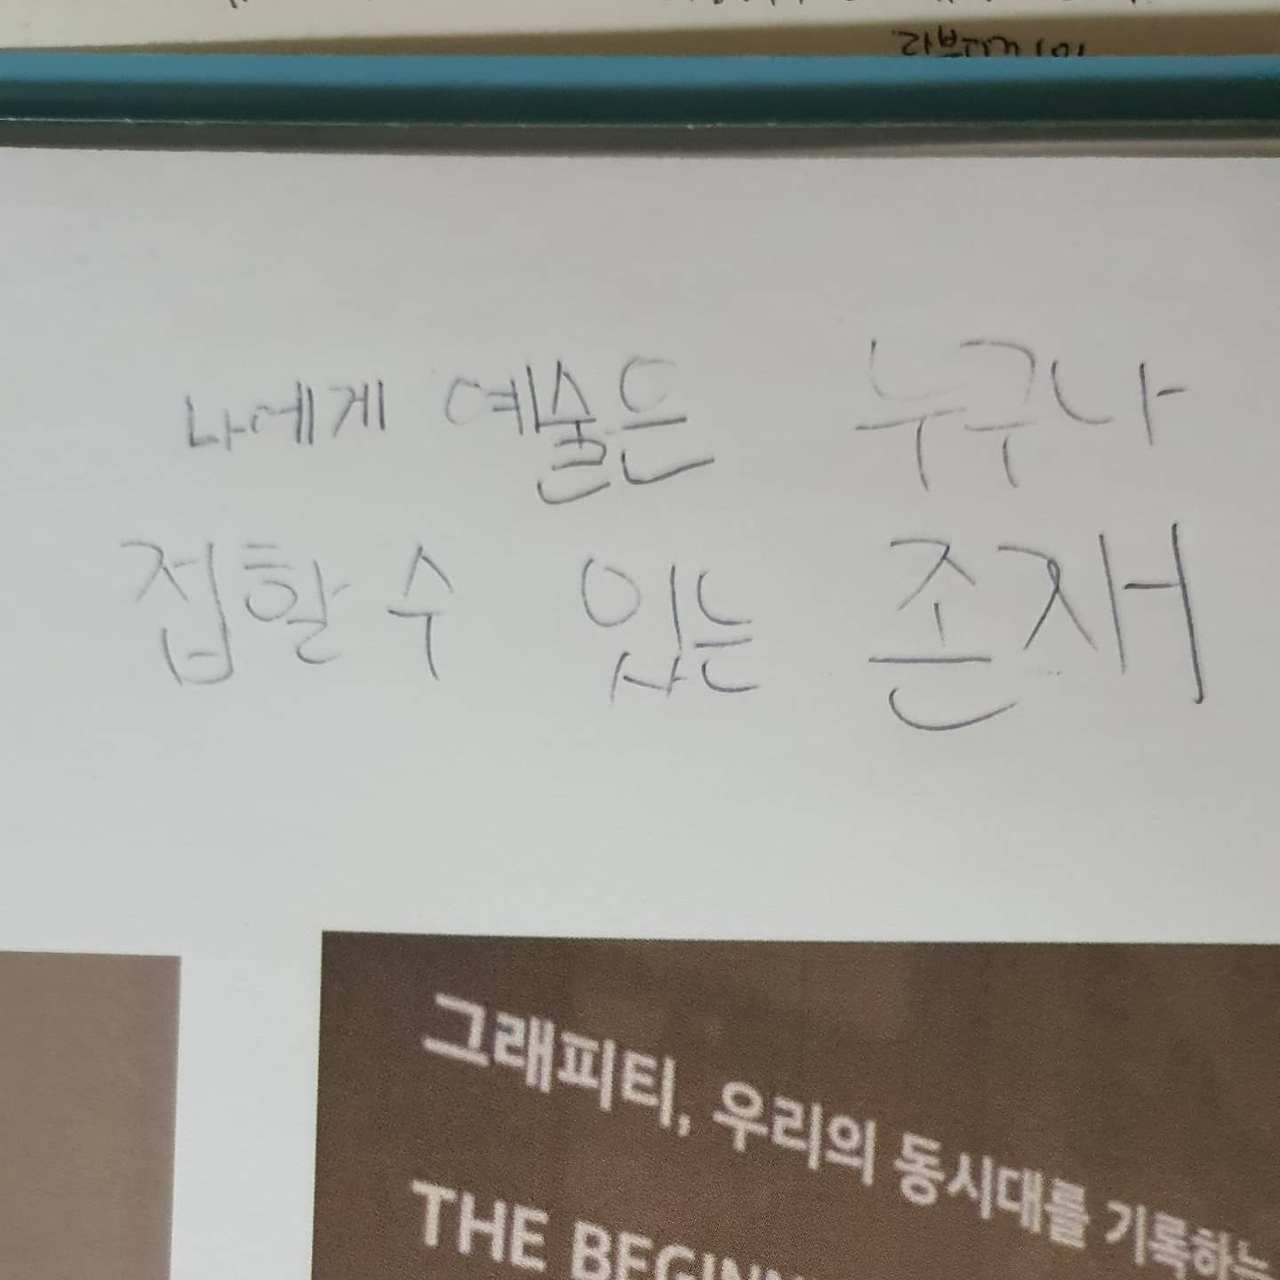 나에게 예술은 누구나
접할 수 있는 존재
그래피티, 우리의 동시대를 기록하는
THE